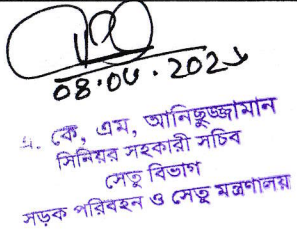 08.04.202
এ. কে, এম, আনিছুজ্জামান
সিনিয়র সহকারী সচিব
সেতু বিভাগ
সড়ক পরিবহন ও সেতু মন্ত্রণালয়